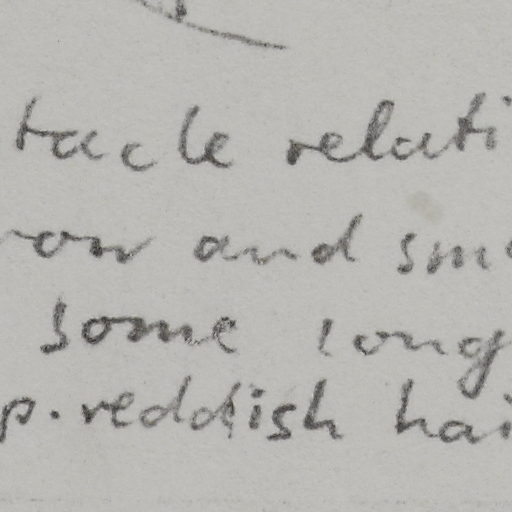 tacle relati
row and sm
some long
p. reddish hai